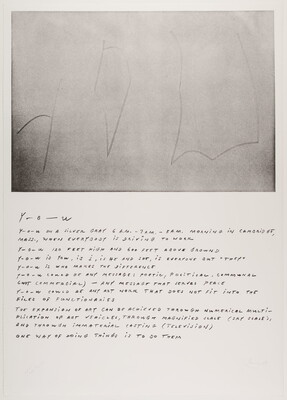 Y-O-U
Y-O-U ON A SILVER GREY 6 A.M. - 7 A.M. - 8 A.M. MORNING IN CAMBRIDGE,
MASS., WHEN EVERYBODY IS DRIVING TO WORK
Y-O-U 100 FEET HIGH AND 600 FEET ABOVE GROUND
Y-O-U IS YOU, IS I, IS HE AND SHE, IS EVERYONE BUT "THEY"
Y-O-U IS WHO MAKES THE DIFFERENCE
Y-O-U COULD BE ANY MESSAGE: POETIC, POLITICAL, COMMUNAL
(NOT COMMERCIAL) — ANY MESSAGE THAT SERVES PEACE
Y-O-U COULD BE ANY ART WORK THAT DOES NOT FIT INTO THE
FILES OF FUNCTIONARIES
THE EXPANSION OF ART CAN BE ACHIEVED THROUGH NUMERICAL MULTI-
PLICATION OF ART VEHICLES, THROUGH MAGNIFIED SCALE (SKY SCALE),
AND THROUGH IMMATERIAL CASTING (TELEVISION)
ONE WAY OF DOING THINGS IS TO DO THEM